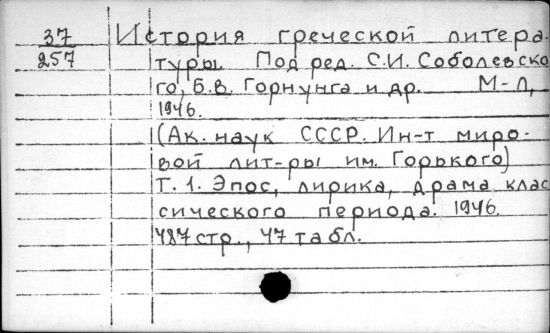 37 История греческой литера-
257 туры. Под ред. С.И. Соболевско
го, Б.В. Горнунга и др. М-Л,
1946.
(Ак. наук СССР. Ин-т миро-
вой лит-ры им. Горького)
Т. 1. Эпос, лирика, драма клас
сического периода. 1946.
487 стр., 47 табл.